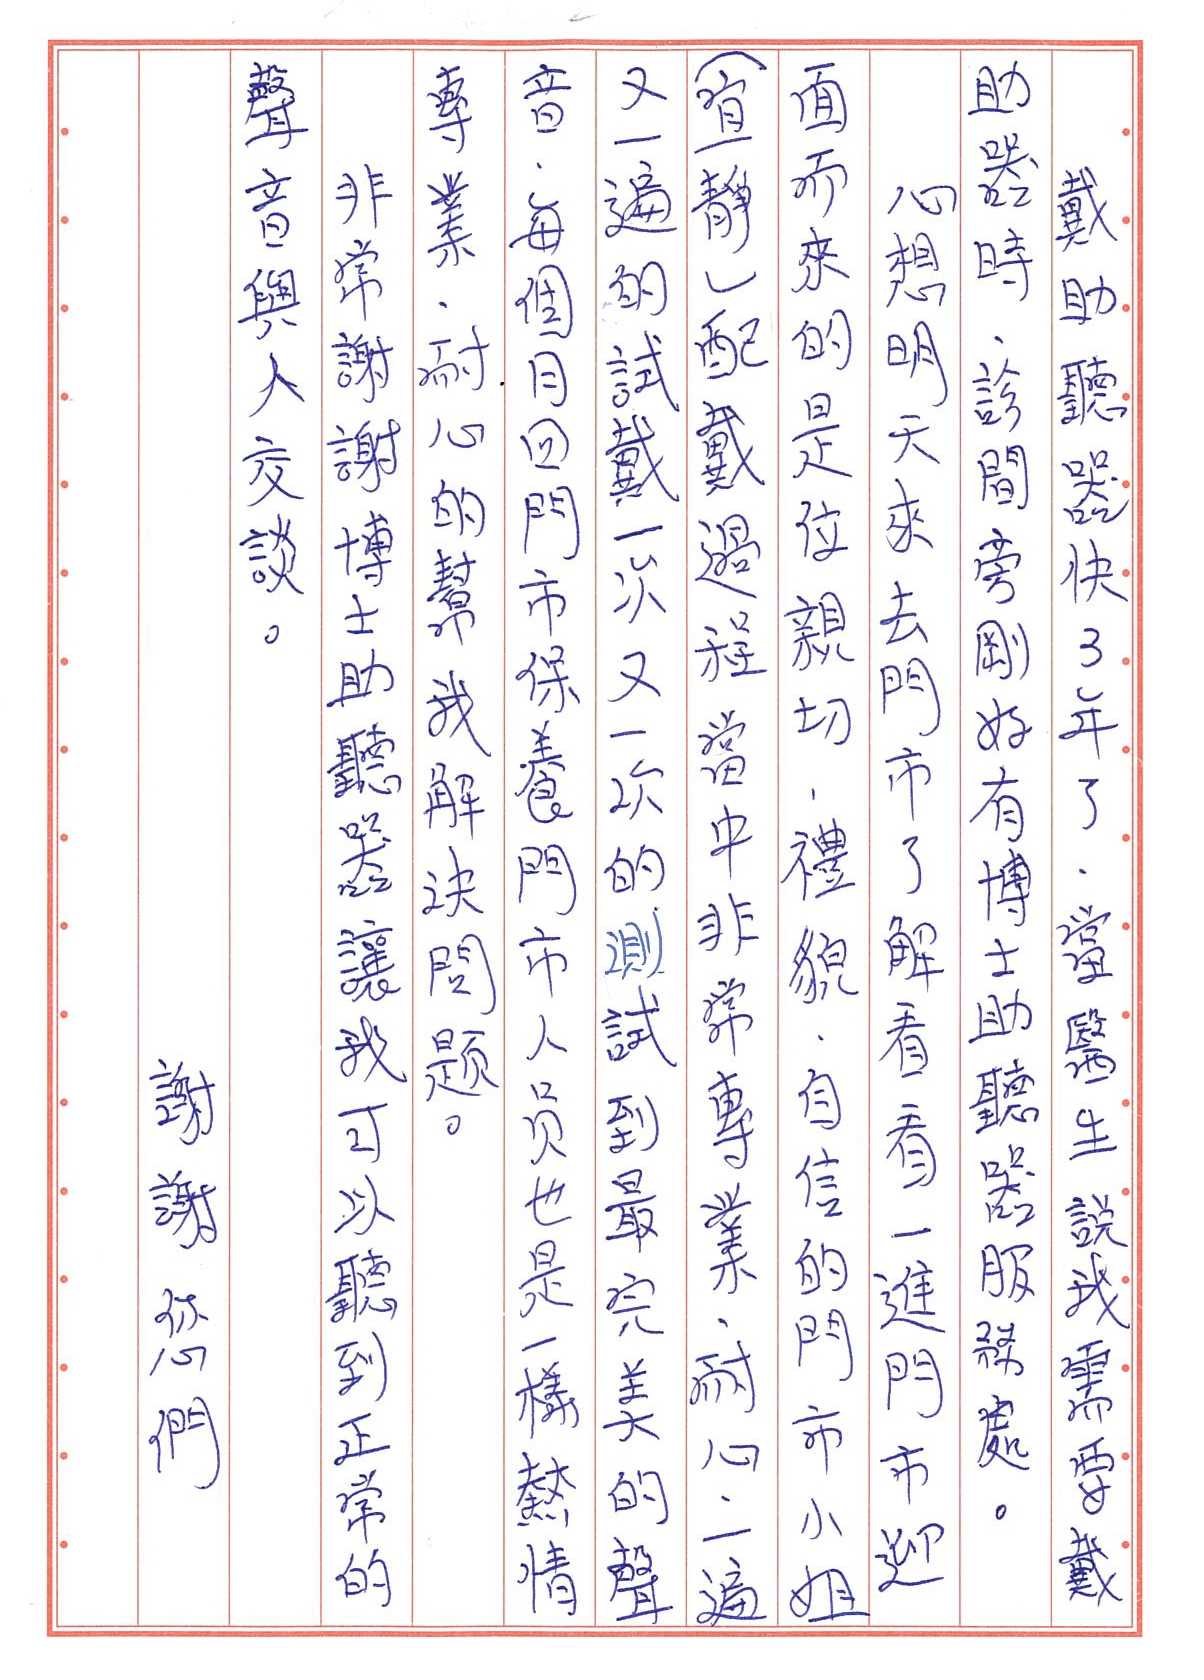 戴助聽器快3年了．當醫生說我需要戴
助器時、診間旁剛好有博士助聽器服務處。
心想明天來去門市了解看看一進門市迎
面而來的是位親切．禮貌．自信的門市小姐
(宜靜)配戴過程當中非常專業．耐心．一遍
又一遍的試戴一次又一次的測試到最完美的聲
音．每個月回門市保養門市人员也是一樣熱情
專業．耐心的幫我解決問题。
非常謝謝博士助聽器讓我可以聽到正常的
聲音與人交談。
謝謝您們